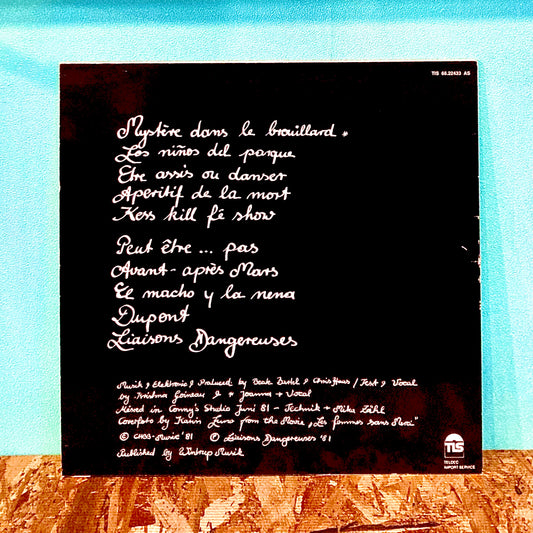 TIS 66.22433 AS
Mystère dans le brouillard *
Los niños del parque
Etre assis ou danser
Aperitif de la mort
Kess kill fé show
Peut être ... pas
Avant-après Mars
El macho y la nena
Dupont
Liaisons Dangereuses
Musik, Elektronic, Produced by Beate Bartel & Chris Haas / Text, Vocal
by Krishna Goineau & * Joanna + Vocal
Mixed in Conny's Studio Juni 81 - Technik +
Coverfoto by Karin from the Movie „La femmes sans Merci"
© CHBB-Musik '81 ℗ Liaisons Dangereuses '81
Published by Wintrup Musik
TIS
TELDEC
IMPORT SERVICE